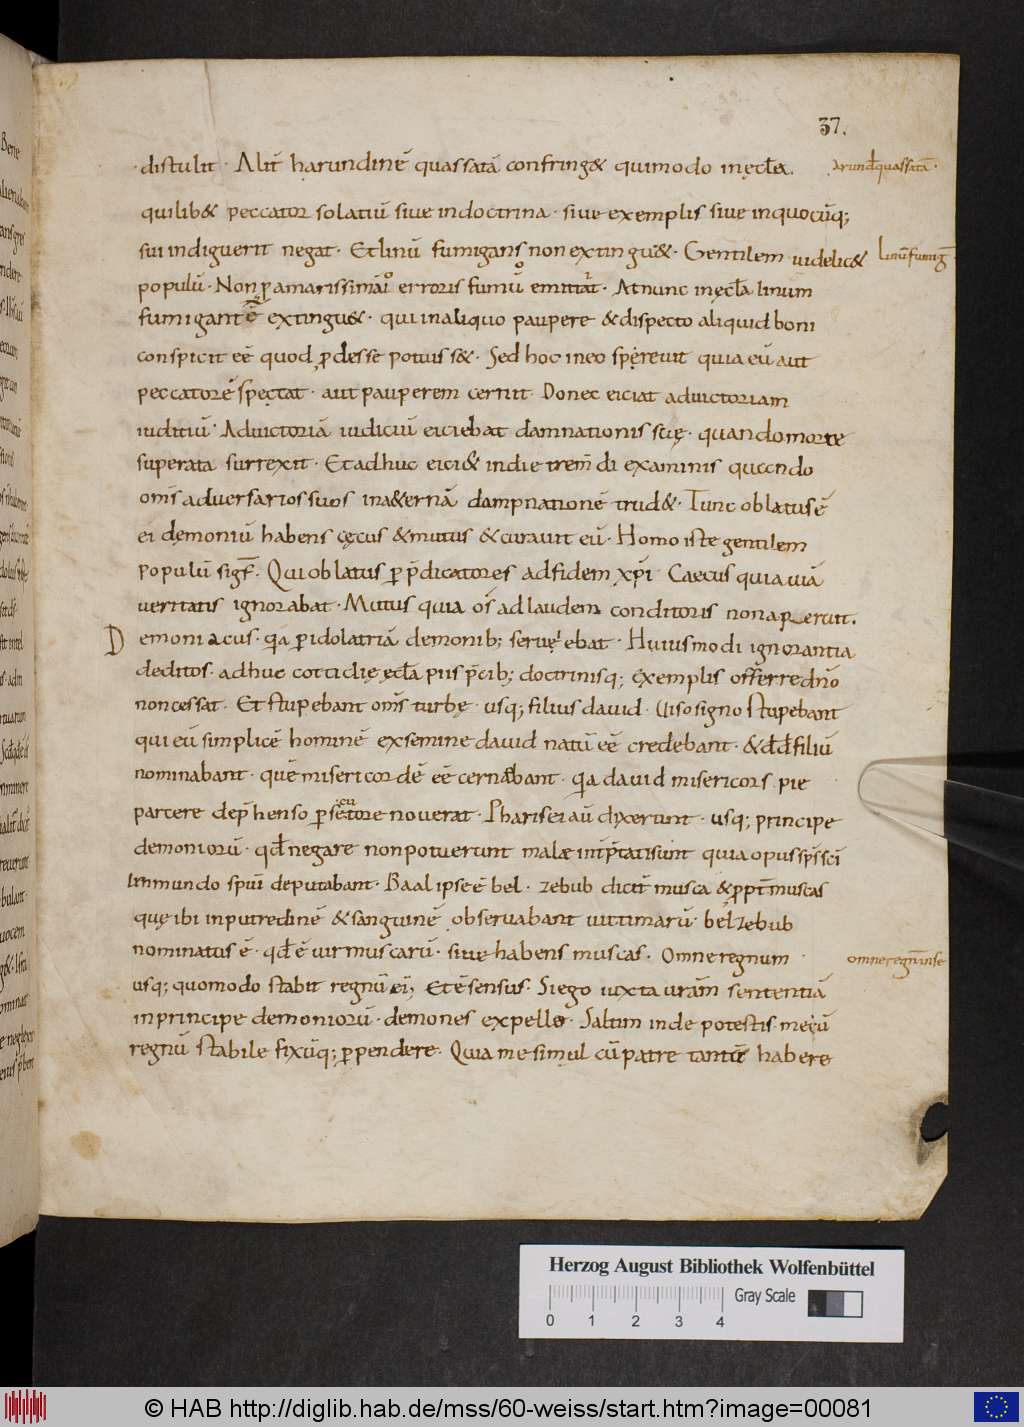 37.
distulit · Alit̄ harundinē quassatā confring& quimodo in ęcƚa. Arund̄ quassatā·
quilib& peccator solatiū siue indoctrina · siue exemplis siue inquocūq;
sui indiguerit negat · Et linū fumigans non extingu& · Gentilem uidelic& Linū fumig̅
populū · Non ꝑ amarissimā erroris fumū emittat · At nunc in ęcƚa linum
fumigantē extingu& · qui in aliquo paupere & dispecto aliquid boni
conspicit eē quod ꝓdesse potuiss& · Sed hoc in eo sperreuit quia eū aut
peccatorē spectat · aut pauperem cernit · Donec eiciat aduictoriam
iuditiū · Aduictoriā iudiciū eiciebat damnationis suę · quando morte
superata surrexit · Et adhuc eici& in die trem̄di examinis quando
om̄s aduersarios suos in a&ernā dampnationē trud& · Tunc oblatus ē
ei demoniū habens cęcus & mutus & curauit eū · Homo iste gentilem
populū sigf̄ · Qui oblatus ꝑ p̄dicatores ad fidem xp̄i Caecus quia uiā
ueritatis ignorabat · Mutus quia os̄ ad laudem conditoris non aperuit.
Demoniacus · qa ꝑ idolatriā demonib; seruiebat · Huiusmodi ignorantia
deditos · adhuc cottidię ęcƚa piis p̄cib; doctrinisq; exemplis offerre dn̄o
non cessat · Et stupebant om̄s turbę · usq; filius dauid · Uiso signo stupebant
qui eū simplicē hominē ex semine dauid natū eē credebant · & dd̄ filiū
nominabant · quē misericordē eē cernebant · qa dauid misericors pie
parcere dep̄henso ꝑsecutore nouerat · Pharisei aū dixerunt · usq; principe
demoniorū · qd̄ negare non potuerunt male int̄p̄tati sunt quia opus sp̄s sc̄i
Inmundo sp̄ui deputabant · Baal ipse ē bel · zebub dicit̄ musca & ꝓpt̄ muscas
quę ibi in putredinē & sanguinē obseruabant uictimarū · belzebub
nominatus ē · qd̄ ē uir muscarū · siue habens muscas · Omne regnum · omne regnū inse
usq; quomodo stabit regnū ei; Et ē sensus · Si ego iuxta uram̄ sententiā
in principe demoniorū · demones expello · Saltim inde potestis mecū
regnū stabile fixūq; ꝑpendere · Quia me simul cū patre tantū habere
Herzog August Bibliothek Wolfenbüttel
Gray Scale
0 1 2 3 4
© HAB http://diglib.hab.de/mss/60-weiss/start.htm?image=00081